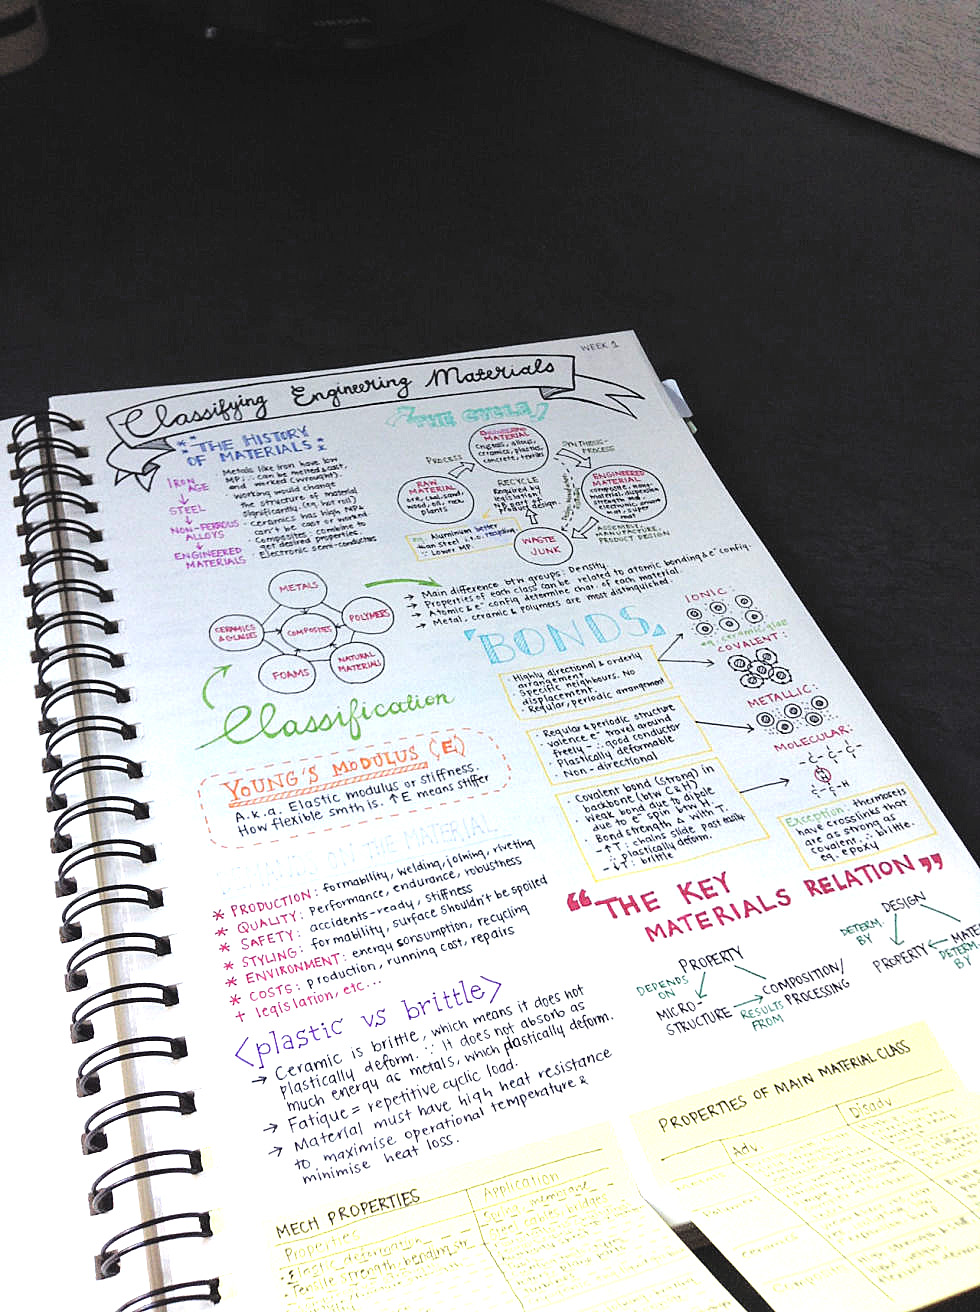 WEEK 1
Classifying Engineering Materials
THE HISTORY
OF MATERIALS
IRON
AGE
STEEL
NON-FERROUS
ALLOYS
ENGINEERED
MATERIALS
Metals like iron have low
MP ∴ can be melted & cast,
and worked (wrought).
working would change
the structure of material
significantly (eg. hot roll)
ceramics has high MP &
can't be cast or worked
Composites: combine to
get desired properties.
Electronic semi-conductor
THE CYCLE
ENGINEERING
MATERIAL
crystals, alloys,
ceramics, plastics,
concrete, textiles
PROCESS
SYNTHESIS-
PROCESS
RAW
MATERIAL
ore, coal, sand,
wood, oil, rock,
plants
RECYCLE
Required by
legislation/
NP, part of
Product design
ENGINEERED
MATERIAL
WASTE
JUNK
ASSEMBLE,
MANUFACTURE,
PRODUCT DESIGN
eg. Aluminium better
than Steel i.t.o. recycling
∵ Lower MP.
METALS
CERAMICS
& GLASSES
COMPOSITES
POLYMERS
FOAMS
NATURAL
MATERIALS
Classification
→ Main difference btn groups: Density
→ Properties of each class can be related to atomic bonding & e⁻ config.
→ Atomic & e⁻ config determine char. of each material
→ Metal, ceramic & polymers are most distinguished.
BONDS
· Highly directional & orderly
arrangement
· Specific neighbours. No
displacement.
· Regular, periodic arrangement
· Regular & periodic structure
· valence e⁻ travel around
freely - ∴ good conductor
· Plastically deformable
· Non-directional
· Covalent bond (strong) in
backbone (btw C & H)
· Weak bond due to dipole
due to e⁻ spin btw H.
· Bond strength Δ with T.
- ↑T: chains slide past easily
∴ plastically deform.
- ↓T: brittle
IONIC:
eg. ceramic, glass
COVALENT:
METALLIC:
MOLECULAR:
-C-C-C-
C-H
Exception: thermosets
have crosslinks that
are as strong as
covalent ∴ brittle.
eg. epoxy
YOUNG'S MODULUS (E)
A.k.a. Elastic modulus or stiffness.
How flexible smth is. ↑E means stiffer
DEMANDS ON THE MATERIAL
* PRODUCTION: formability, welding, joining, riveting
* QUALITY: Performance, endurance, robustness
* SAFETY: accidents-ready, stiffness
* STYLING: formability, surface shouldn't be spoiled
* ENVIRONMENT: energy consumption, recycling
* COSTS: production, running cost, repairs
+ legislation, etc...
"THE KEY
MATERIALS RELATION"
PROPERTY
DEPENDS
ON
MICRO-
STRUCTURE
RESULTS
FROM
COMPOSITION/
PROCESSING
DESIGN
DETERM.
BY
PROPERTY
DETERM-
BY
<plastic vs brittle>
→ Ceramic is brittle, which means it does not
plastically deform. ∵ It does not absorb as
much energy as metals, which plastically deform.
→ Fatique = repetitive cyclic load.
→ Material must have high heat resistance
to maximise operational temperature &
minimise heat loss.
MECH PROPERTIES
Properties
Application
· Elastic deformation
· Tensile strength, bending str
PROPERTIES OF MAIN MATERIAL CLASS
Adv
Disadv